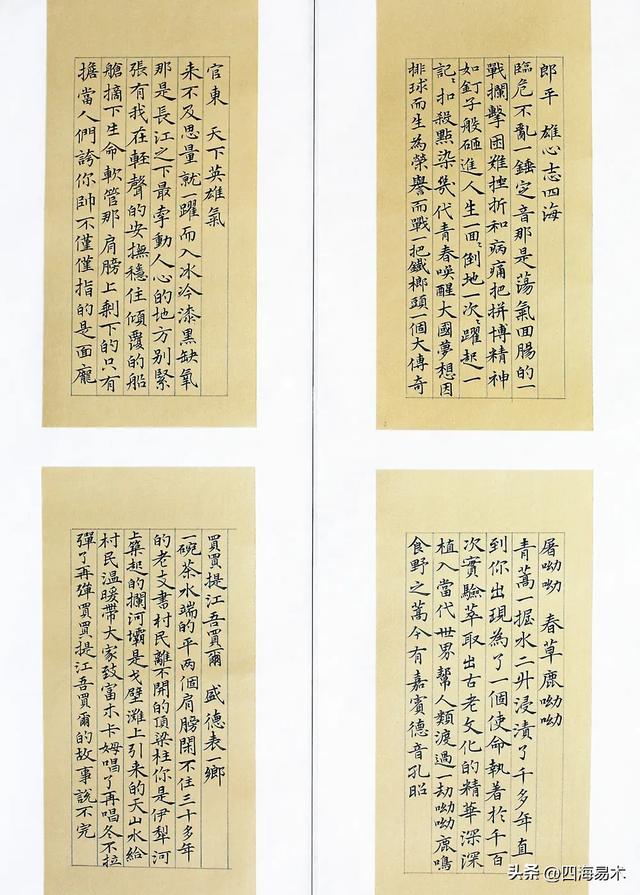 郎平 雄心志四海
臨危不亂一錘定音那是蕩氣囬腸的一
戰攔擊困難挫折和病痛把拼博精神
如釘子般砸進人生一囬〻倒地一次〻躍起一
記〻扣殺點染幾代青春喚醒大國夢想因
排球而生為榮譽而戰一把鐵榔頭一個大傳奇
官東 天下英雄氣
来不及思量就一躍而入冰冷漆黑缺氧
那是長江之下最牽動人心的地方別緊
張有我在輕聲的安撫穩住傾覆的船
艙摘下生命軟管那肩膀上剩下的只有
擔當人們誇你帥不僅僅指的是面龐
屠呦呦 春草鹿呦呦
青蒿一握水二升浸漬了千多年直
到你出現為了一個使命執著於千百
次實驗萃取出古老文化的精華深深
植入當代世界幫人類渡過一劫呦呦鹿鳴
食野之蒿今有嘉賓德音孔昭
買買提江吾買爾 盛德表一鄉
一碗茶水端的平两個肩膀閑不住三十多年
的老支書村民離不開的頂梁柱你是伊犁河
上築起的攔河壩是戈壁灘上引来的天山水給
村民溫暖帶大家致富木卡姆唱了再唱冬不拉
彈了再彈買買提江吾買爾的故事說不完
头条 @四海易木